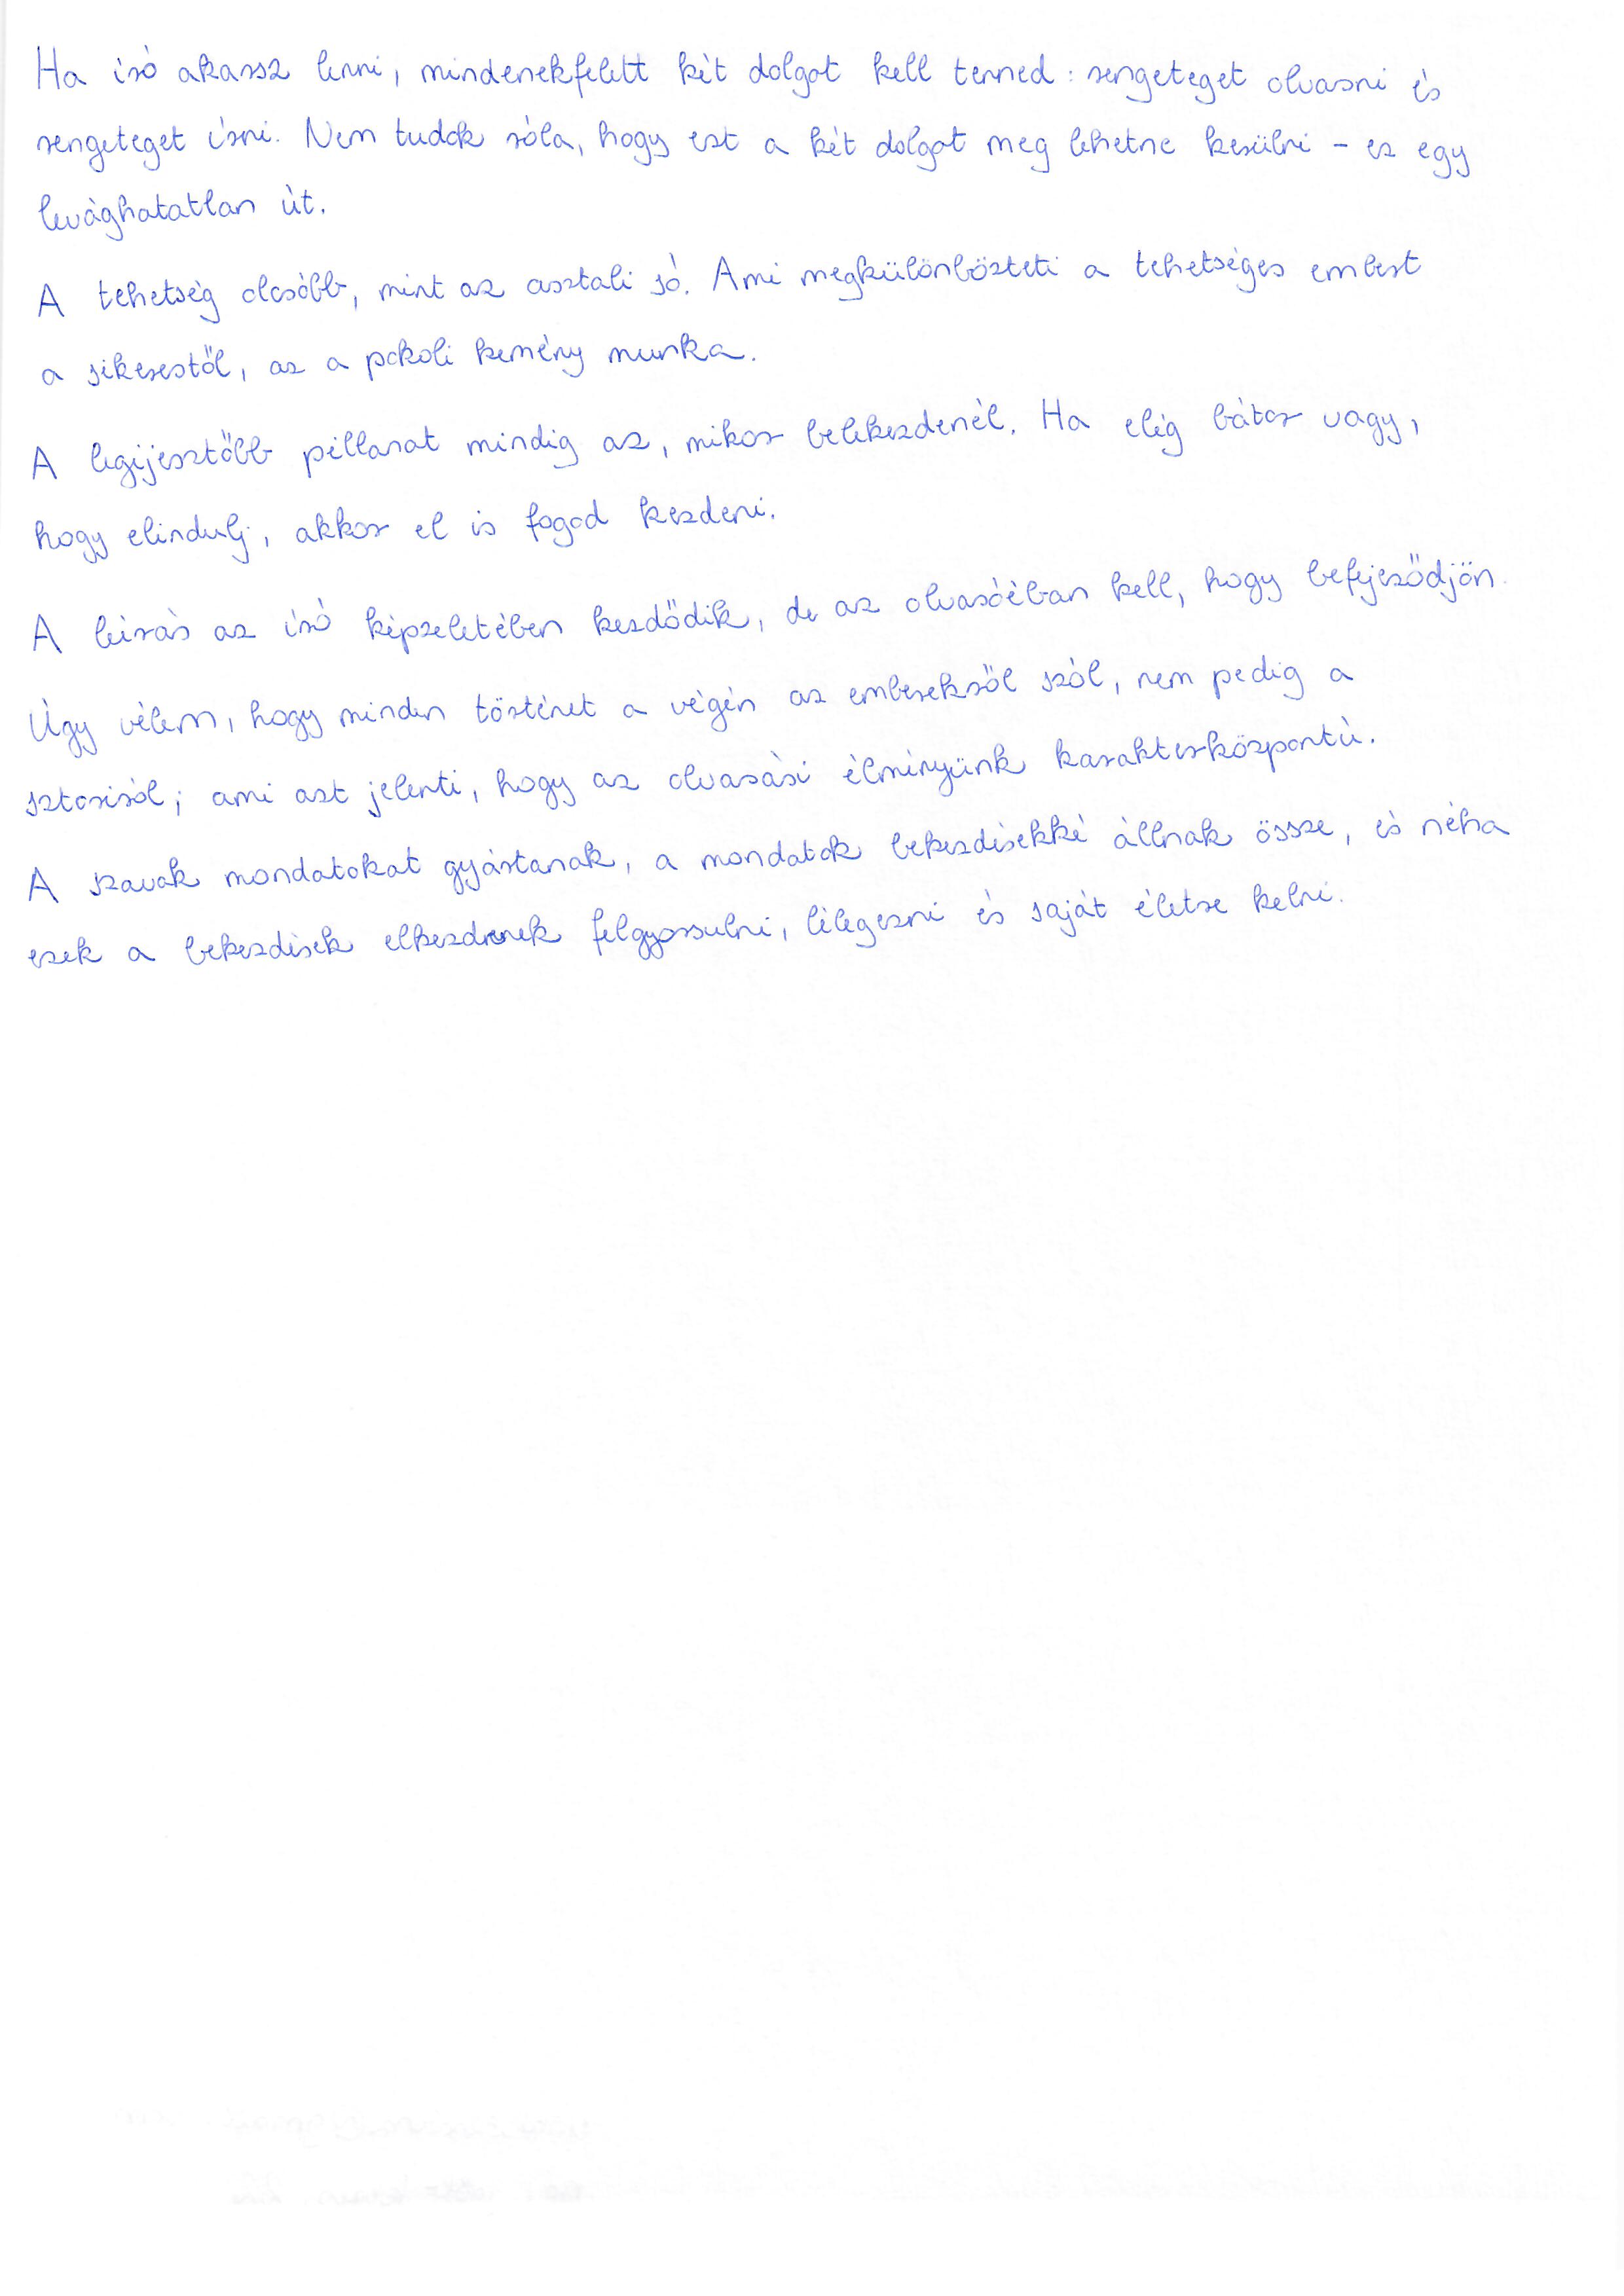 Ha író akarsz lenni, mindenekfelett két dolgot kell tenned: rengeteget olvasni és
rengeteget írni. Nem tudok róla, hogy ezt a két dolgot meg lehetne kerülni - ez egy
levághatatlan út.
A tehetség olcsóbb, mint az asztali só. Ami megkülönbözteti a tehetséges embert
a sikerestől, az a pokoli kemény munka.
A legijesztőbb pillanat mindig az, mikor belekezdenél. Ha elég bátor vagy,
hogy elindulj, akkor el is fogod kezdeni.
A leírás az író képzeletében kezdődik, de az olvasóéban kell, hogy befejeződjön.
Úgy vélem, hogy minden történet a végén az emberekről szól, nem pedig a
sztoriról; ami azt jelenti, hogy az olvasási élményünk karakterközpontú.
A szavak mondatokat gyártanak, a mondatok bekezdésekké állnak össze, és néha
ezek a bekezdések elkezdenek felgyorsulni, lélegezni és saját életre kelni.